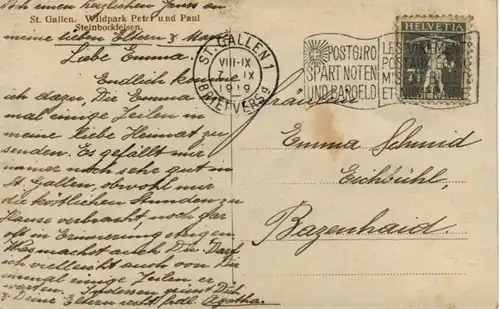 noch einen herzlichen Gruss an
St. Gallen. Wildpark Peter und Paul
Steinbockfelsen.
meine lieben Eltern &
Liebe Emma!
Endlich komme
ich dazu, Dir Emma
mal einige Zeilen in
meine liebe Heimat zu
senden. Es gefällt mir
immer noch sehr gut in
St. Gallen, obwohl mir
die köstlichen Stunden zu
Hause verbracht, noch gar
oft in Erinnerung steigen.
Was machst auch Du? Darf
ich vielleicht auch von Dir
einmal einige Zeilen er
warten. Indessen grüsst Dich
& Deine Eltern recht frdl. Agatha.
ST. GALLEN 1
VIII-IX
7. IX
1919
BRIEFVERS.
POSTGIRO
SPART NOTEN
UND BARGELD
LES VIREMENTS
POSTAUX
ET NUMERAIRE
HELVETIA
7½
Fräulein
Emma Schmid
Eichbühl,
Bazenhaid.